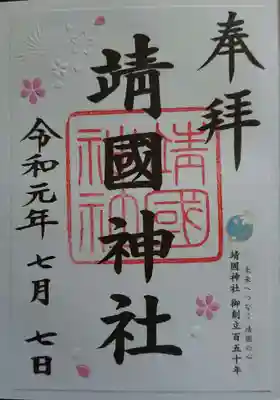 奉拝
未来へつなぐ 靖國の心
靖國神社 御創立百五十年
靖國神社
靖國神社
令和元年 七月 七日